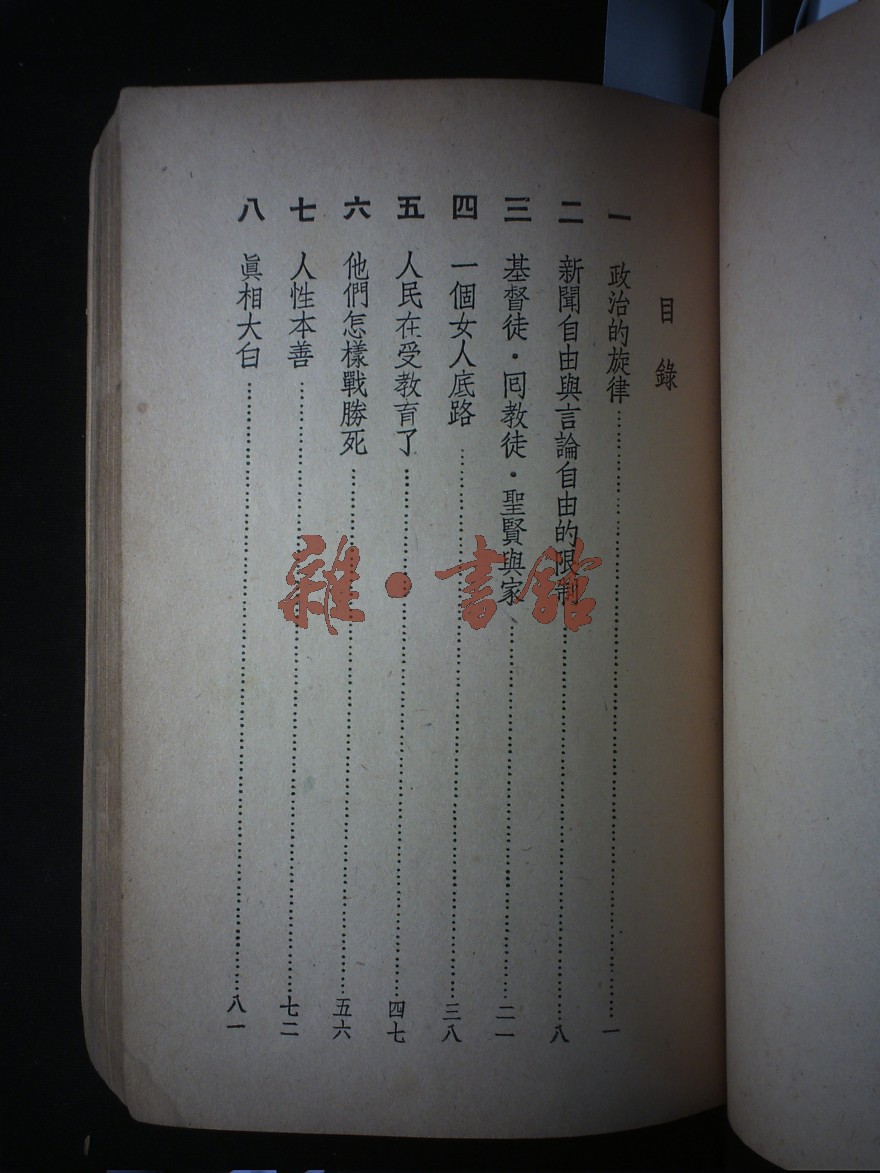 目錄
一 政治的旋律……一
二 新聞自由與言論自由的限制……八
三 基督徒・囘教徒・聖賢與家……二一
四 一個女人底路……三八
五 人民在受教育了……四七
六 他們怎樣戰勝死……五六
七 人性本善……七二
八 眞相大白……八一
雜・書館